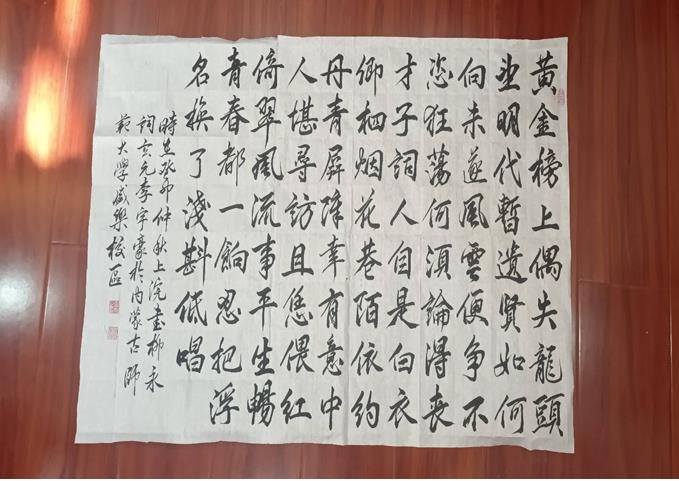 黃金榜上偶失龍頭
望明代暫遺賢如何
向未遂風雲便爭不
恣狂蕩何須論得喪
才子詞人自是白衣
卿相烟花巷陌依約
丹青屏障幸有意中
人堪尋訪且恁偎紅
倚翠風流事平生暢
青春都一餉忍把浮
名換了淺斟低唱
時在癸卯仲秋上浣書柳永
詞玄元李宇豪於内蒙古師
範大學盛樂校區